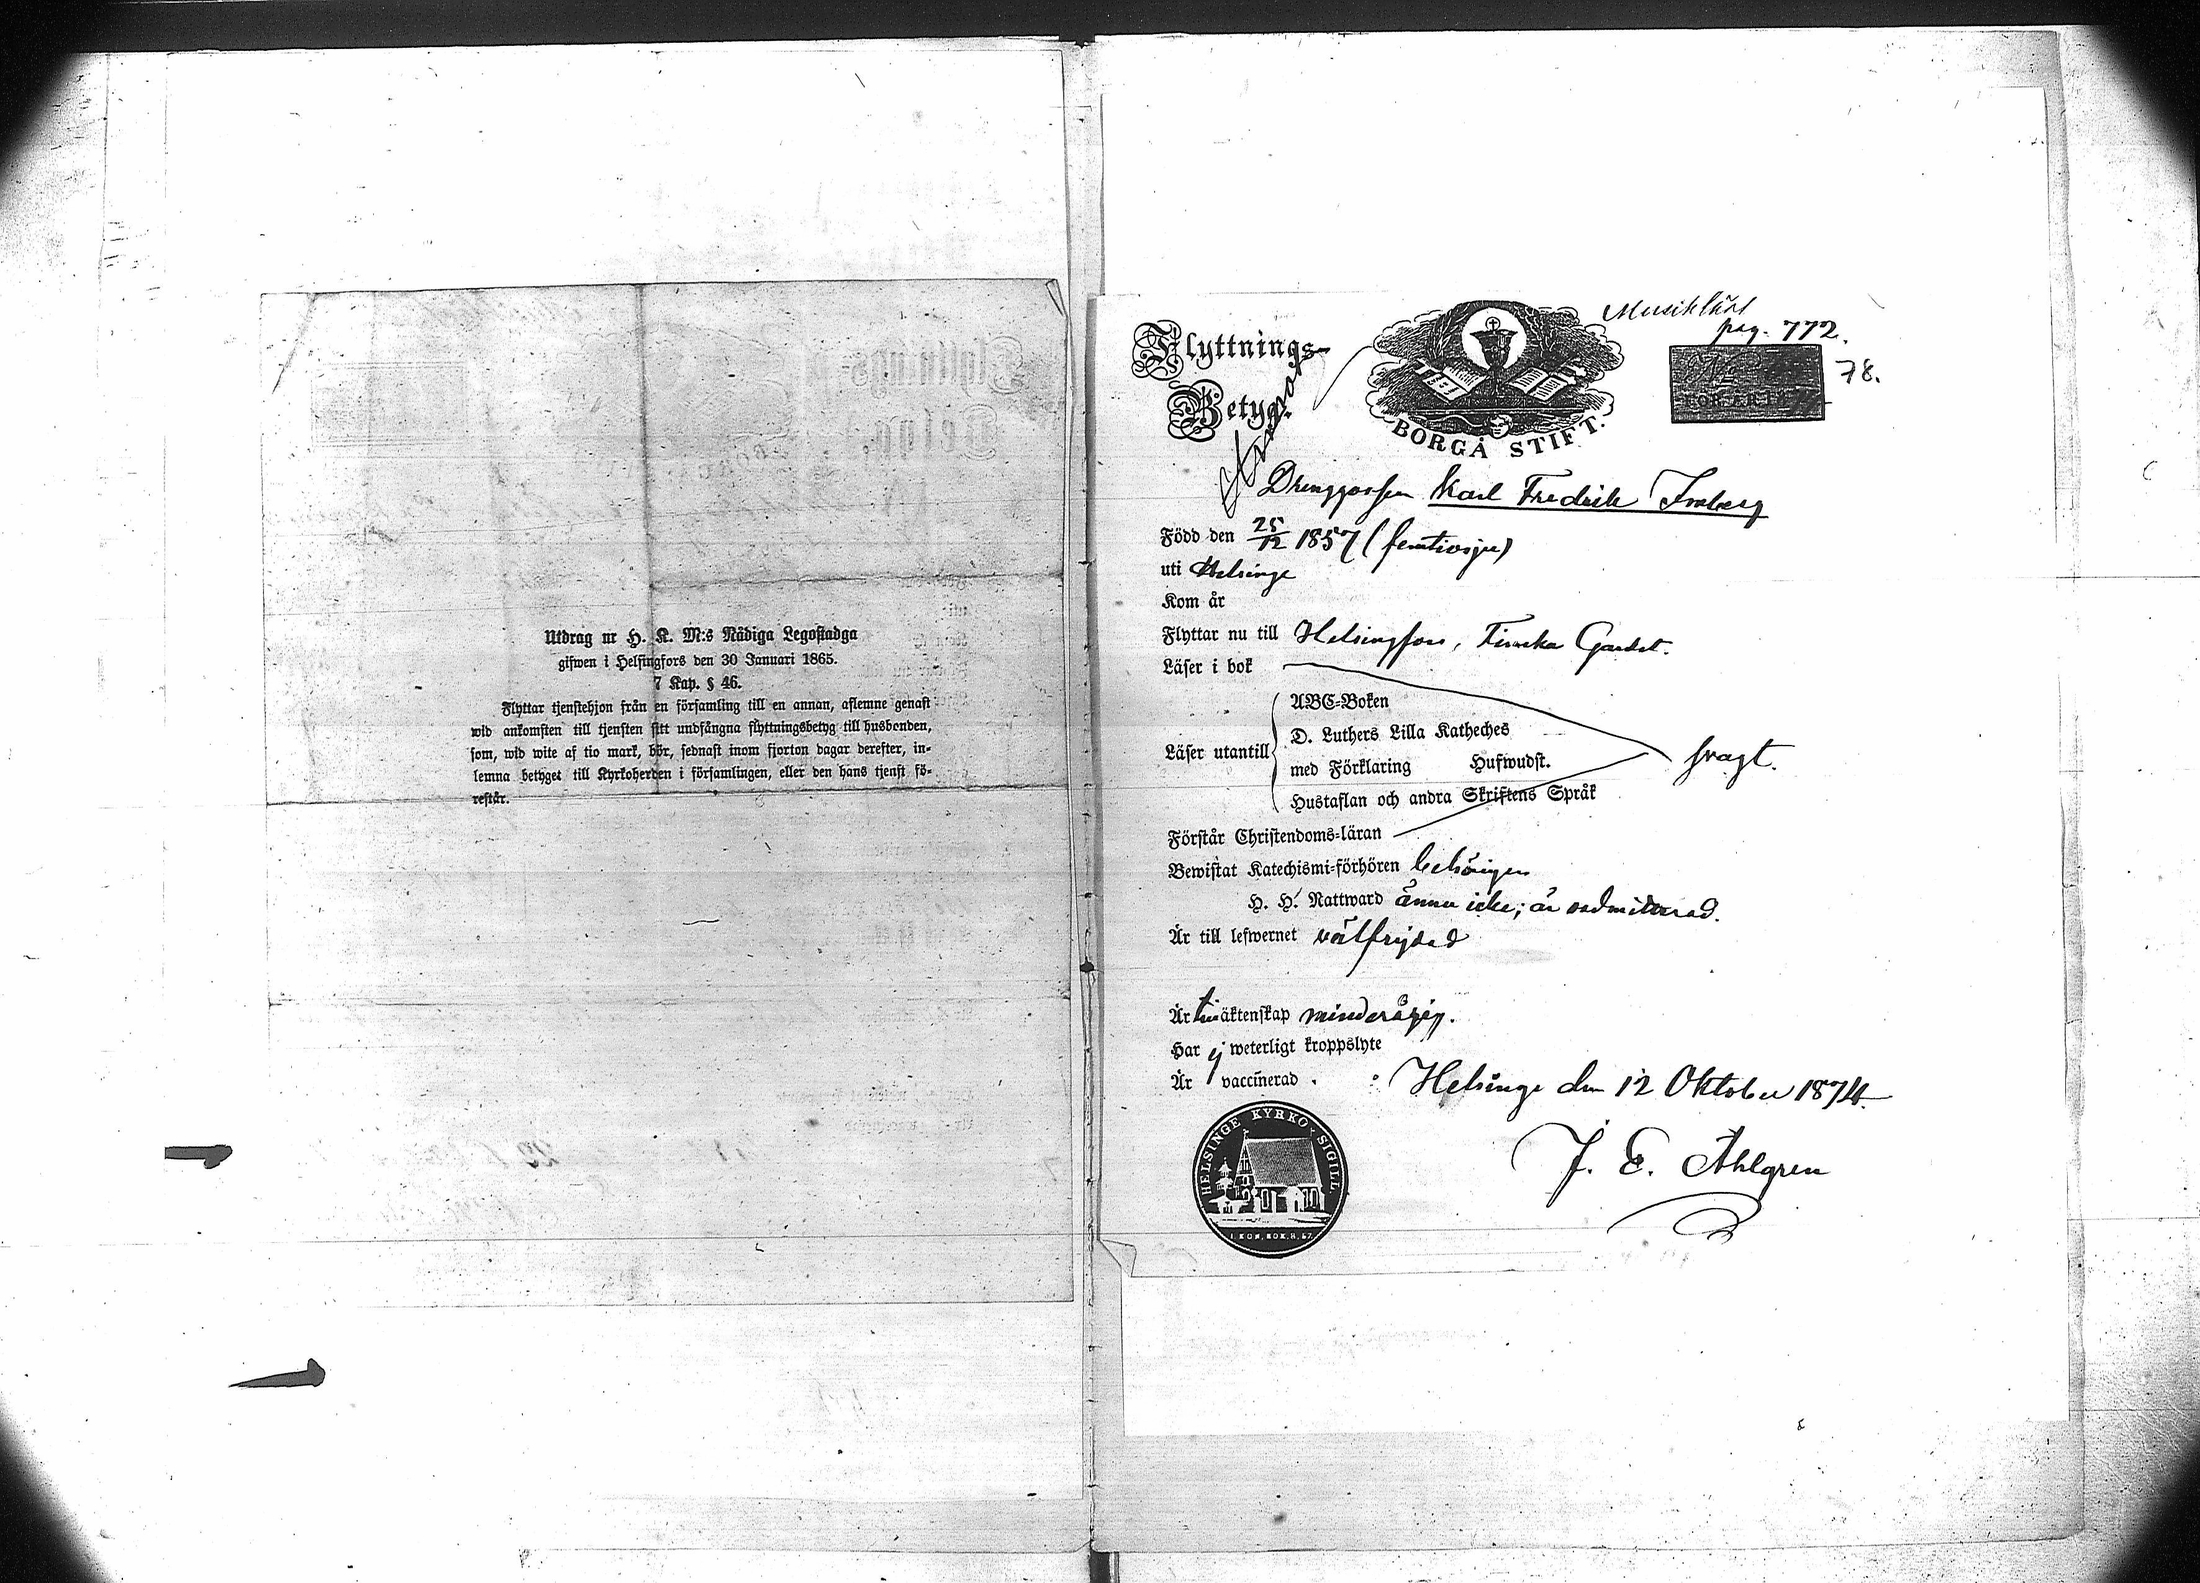 Utdrag ur H. K. M:s Nådiga Legostadga
gifwen i Helsingfors den 30 Januari 1865.
7 Kap. § 46.
Flyttar tjenstehjon från en församling till en annan, aflemne genast
wid ankomsten till tjensten sitt undfångna flyttningsbetyg till husbonden,
som, wid wite af tio mark, bör, sednast inom fjorton dagar derefter, in-
lemna betyget till Kyrkoherden i församlingen, eller den hans tjenst fö-
restår.
Musiklärl
pag. 772.
Flyttnings-
Betyg.
78.
BORGÅ STIFT.
Drenggossen Karl Fredrik
Född den 25/12 1857 (femtiosju)
uti Helsinge
Kom år
Flyttar nu till Helsingfors, Finska Gardet.
Läser i bok
Läser utantill
ABC-Boken
D. Luthers Lilla Katheches
med Förklaring Hufwudst.
Hustaflan och andra Skriftens Språk
svagt.
Förstår Christendoms-läran
Bewistat Katechismi-förhören behörigen
H. H. Nattward ännu icke; är oadmitterad.
Är till lefwernet välfrejdad
Är äktenskap minderårig.
Har ej weterligt kroppslyte
Är vaccinerad.
Helsinge den 12 Oktober 1874.
J. E. Ahlgren
HELSINGE KYRKO SIGILL